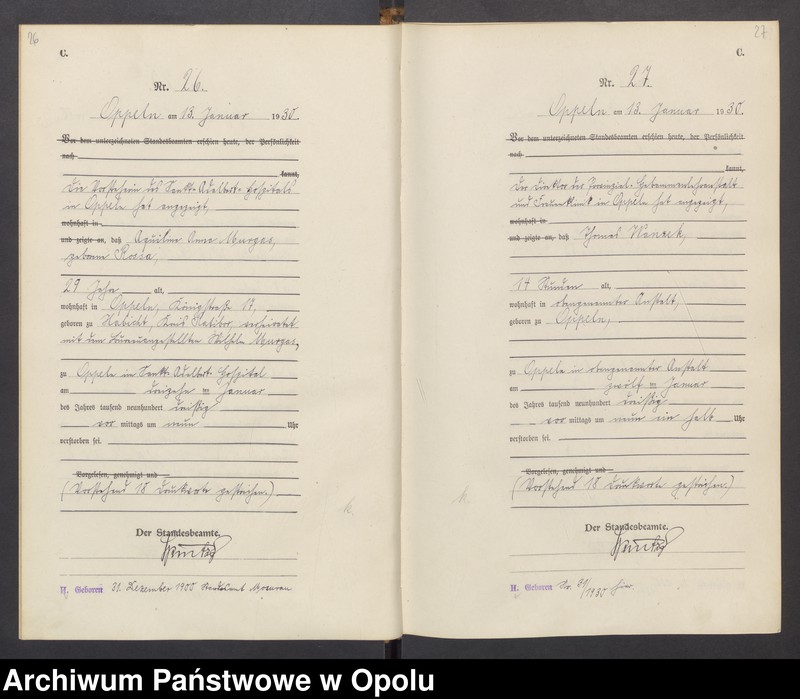 26
C.
Nr. 26.
Oppeln am 13. Januar 1930.
Vor dem unterzeichneten Standesbeamten erschien heute, der Persönlichkeit
nach
kannt,
Die Vorsteherin des Sankt Adalbert-Hospitals
in Oppeln hat angezeigt,
wohnhaft in
und zeigte an, daß Aquiline Anna Murgas,
geborene Kossa,
29 Jahr alt,
wohnhaft in Oppeln, Königstraße 17,
geboren zu Habicht, Kreis Ratibor, verheiratet
mit dem Büroangestellten Wilhelm Murgas,
zu Oppeln im Sankt Adalbert-Hospital
am dreizehn ten Januar
des Jahres tausend neunhundert dreißig
vor mittags um neun Uhr
verstorben sei.
Vorgelesen, genehmigt und
(Vorstehend 18 Druckworte gestrichen.)
Der Standesbeamte.
H. Geboren 31. Dezember 1900 Standesamt
27
C.
Nr. 27.
Oppeln am 13. Januar 1930.
Vor dem unterzeichneten Standesbeamten erschien heute, der Persönlichkeit
nach
kannt,
Der Direktor der Provinzial-Hebammenlehranstalt
und Frauenklinik in Oppeln hat angezeigt,
wohnhaft in
und zeigte an, daß Thomas Wanzek,
14 Stunden alt,
wohnhaft in obengenannter Anstalt,
geboren zu Oppeln,
zu Oppeln in obengenannter Anstalt
am zwölf ten Januar
des Jahres tausend neunhundert dreißig
vor mittags um neun ein halb Uhr
verstorben sei.
Vorgelesen, genehmigt und
(Vorstehend 18 Druckworte gestrichen.)
Der Standesbeamte.
H. Geboren Nr. 31/1930 hier.
Archiwum Państwowe w Opolu